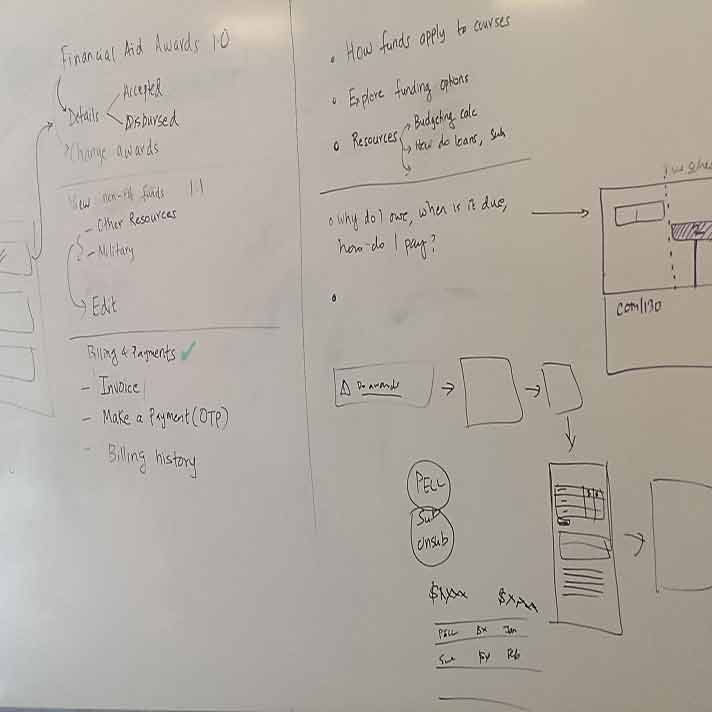 Financial Aid Awards 1.0
Details
Accepted
Disbursed
Change awards
View non- funds 1.1
- Other Resources
- Military
Edit
Billing & Payments ✓
- Invoice
- Make a Payment (OTP)
- Billing history
• How funds apply to courses
• Explore funding options
• Resources
Budgeting calc
How do loans, sub
• Why do I owe, when is it due,
how do I pay?
•
com/130
PELL
Sub
Unsub
$xxx $xxx
PELL Jan
Sub